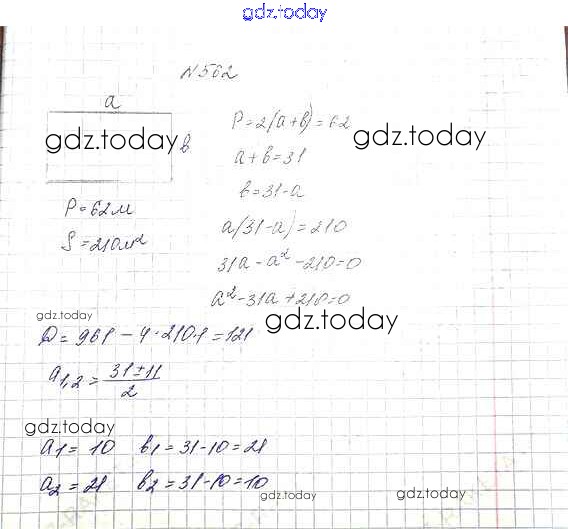 gdz.today
N 562
a
P=2(a+b)=62
gdz.today
gdz.today
b
a+b=31
b=31-a
P=62м
a(31-a)=210
S=210м²
31a-a²-210=0
a²-31a+210=0
gdz.today
gdz.today
D=961-4·210·1=121
a1,2=(31±11)/2
gdz.today
a1=10 b1=31-10=21
a2=21 b2=31-10=10
gdz.today
gdz.today